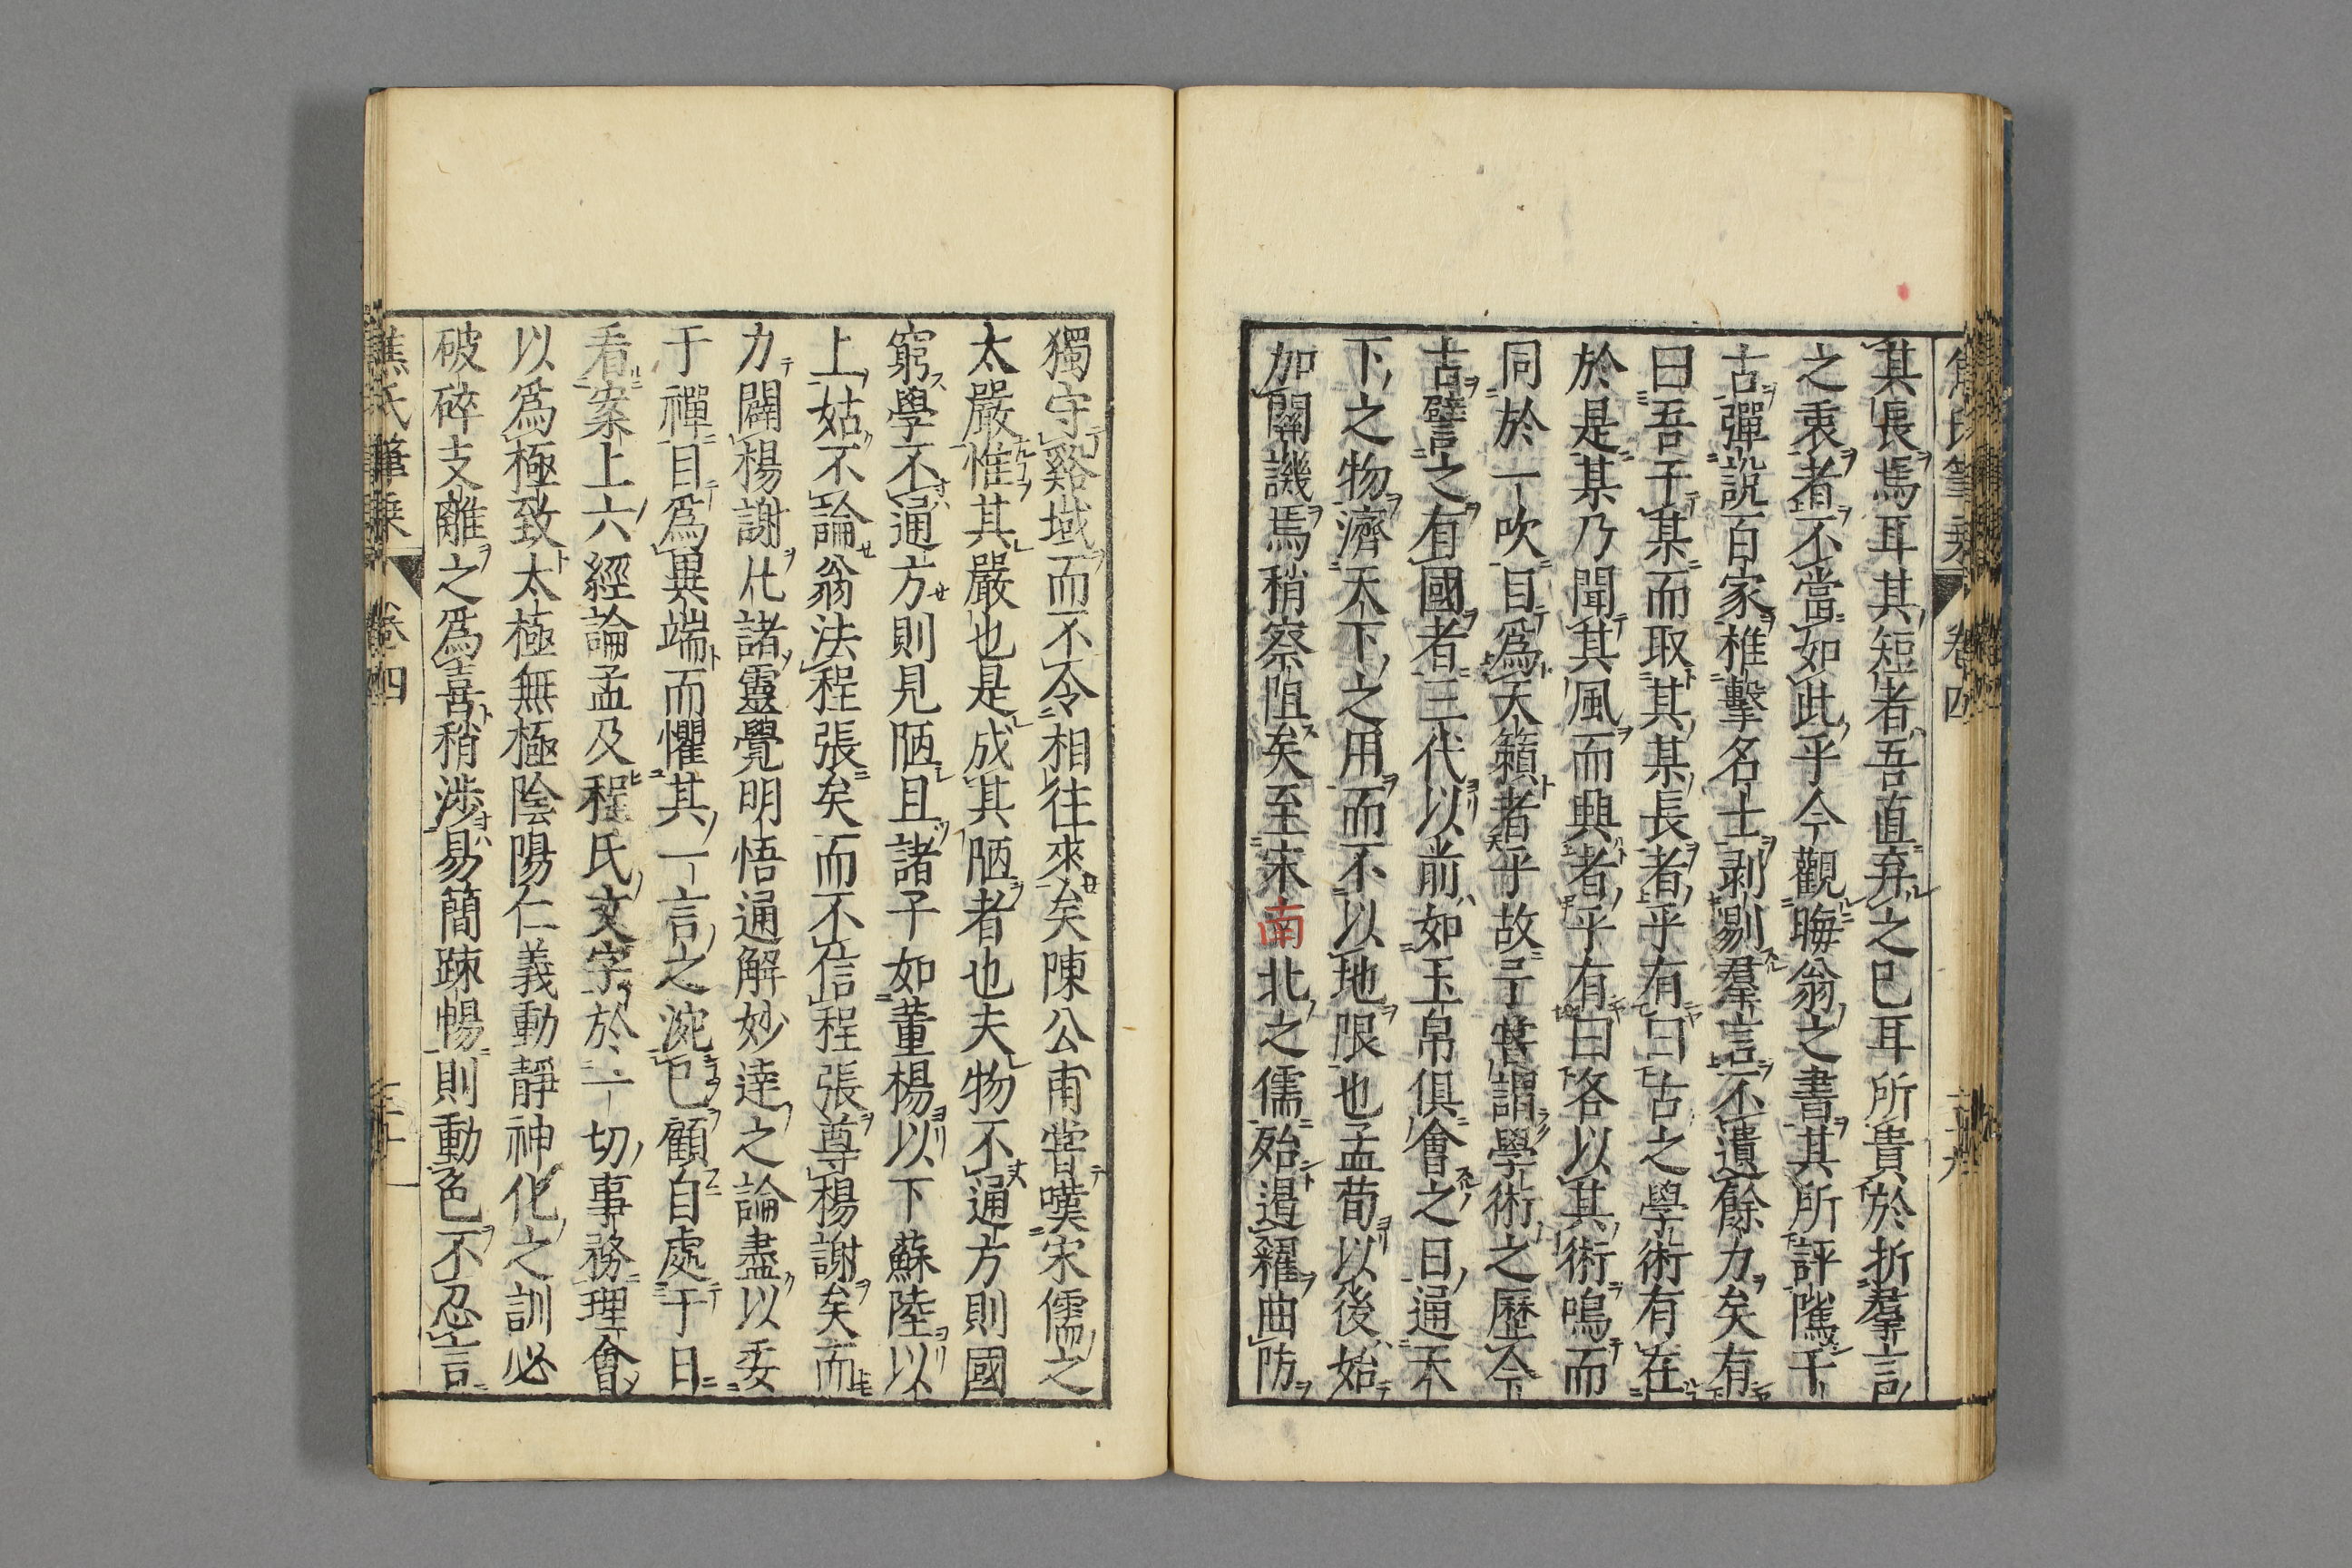 其長焉耳其短者吾直弃之已耳所貴於折羣言
之衷者不當如此乎今觀晦翁之書其所評騭千
古彈説百家椎擊名士剥剔羣言不遺餘力矣有
曰吾于某而取其某長者乎有曰古之學術有在
於是某乃聞其風而興者乎有曰各以其術鳴而
同於一吹自爲天籟者乎故予嘗謂學術之歷今
古譬之有國者三代以前如玉帛俱會之日通天
下之物濟天下之用而不以地限也孟荀以後始
加關譏焉稍察阻矣至宋南北之儒殆遏糴曲防
獨守谿域而不令相往來矣陳公甫嘗嘆宋儒之
太嚴惟其嚴也是成其陋者也夫物不通方則國
窮學不通方則見陋且諸子如董楊以下蘇陸以
上姑不論翁法程張矣而不信程張尊楊謝矣而
力闢楊謝凡諸靈覺明悟通解妙達之論盡以委
于禪目爲異端而懼其一言之涴已顧自處于日
看案上六經論孟及程氏文字於一切事務理會
以爲極致太極無極陰陽仁義動靜神化之訓必
破碎支離之爲喜稍渉易簡疎暢則動色不忍言
焦氏筆乗 卷四